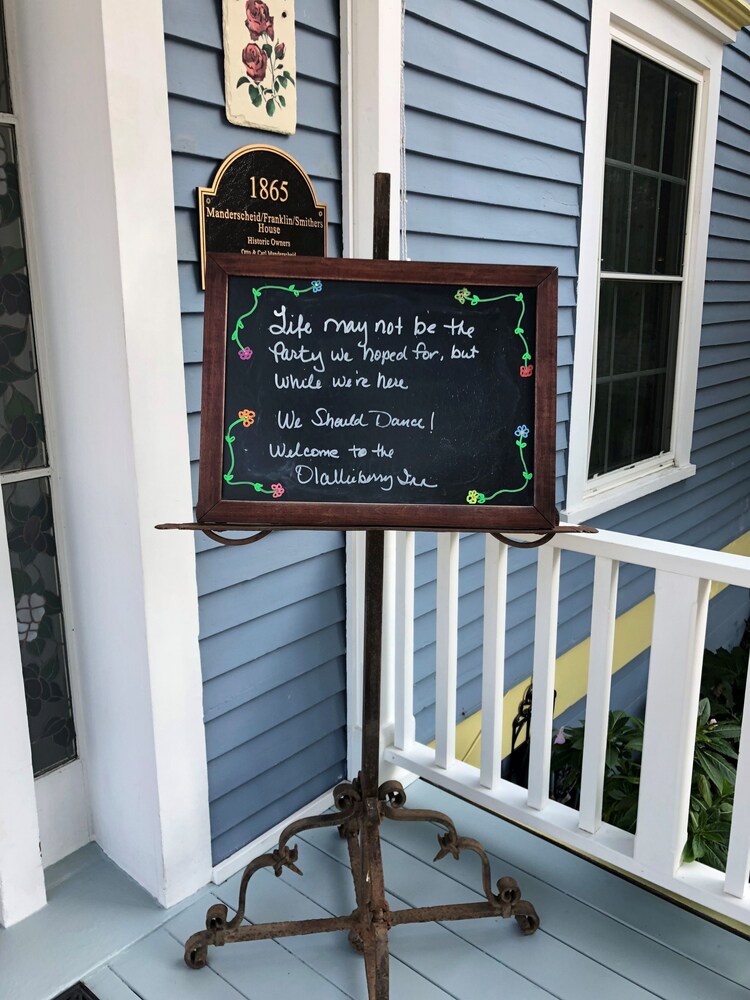 1865
Manderscheid/Franklin/Smithers
House
Historic Owners
Otto & Carl Manderscheid
Life may not be the
Party we hoped for, but
While we're here
We Should Dance!
Welcome to the
Olallieberry Inn